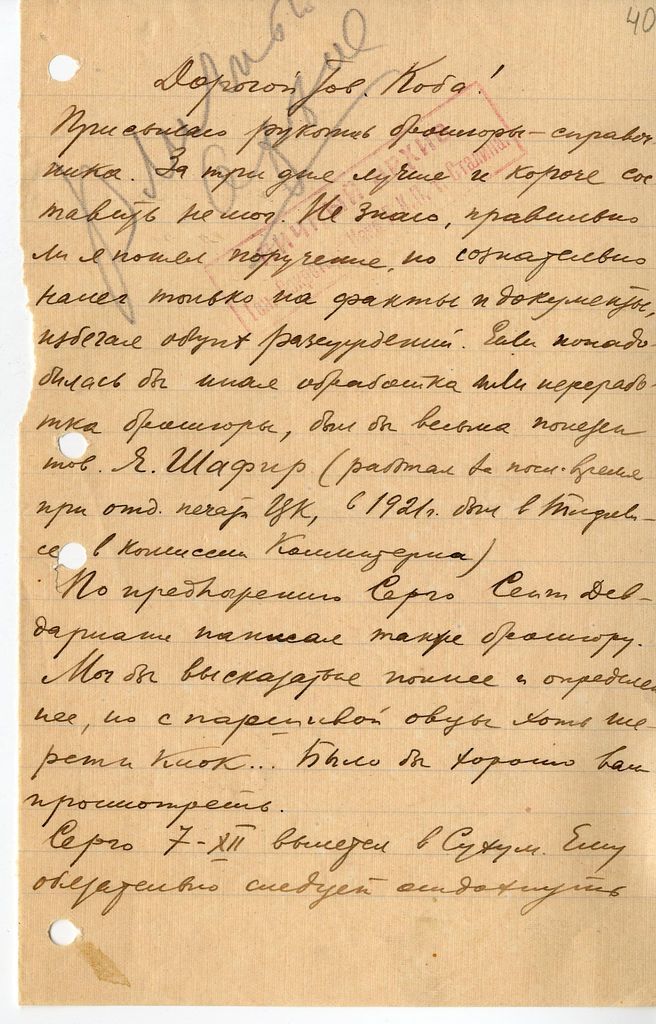 40
Дорогой тов. Коба!
Присылаю рукопись брошюры-справоч
ника. За три дня лучше и короче сос
тавить не мог. Не знаю, правильно
ли я понял поручение, но сознательно
налег только на факты и документы,
избегая общих рассуждений. Если понадо-
билась бы иная обработка или перерабо-
тка брошюры, был бы весьма полезен
тов. Я. Шафир (работал за посл. время
при отд. печати ЦК, в 1921г. был в Тифли-
се в комиссии Коминтерна)
По предложению Серго Сеит Дев-
дариани написал также брошюру.
Мог бы высказаться полнее и определен
нее, но с паршивой овцы хоть ше-
рсти клок... Было бы хорошо вам
просмотреть.
Серго 7-XII выехал в Сухум. Ему
обязательно следует отдохнуть